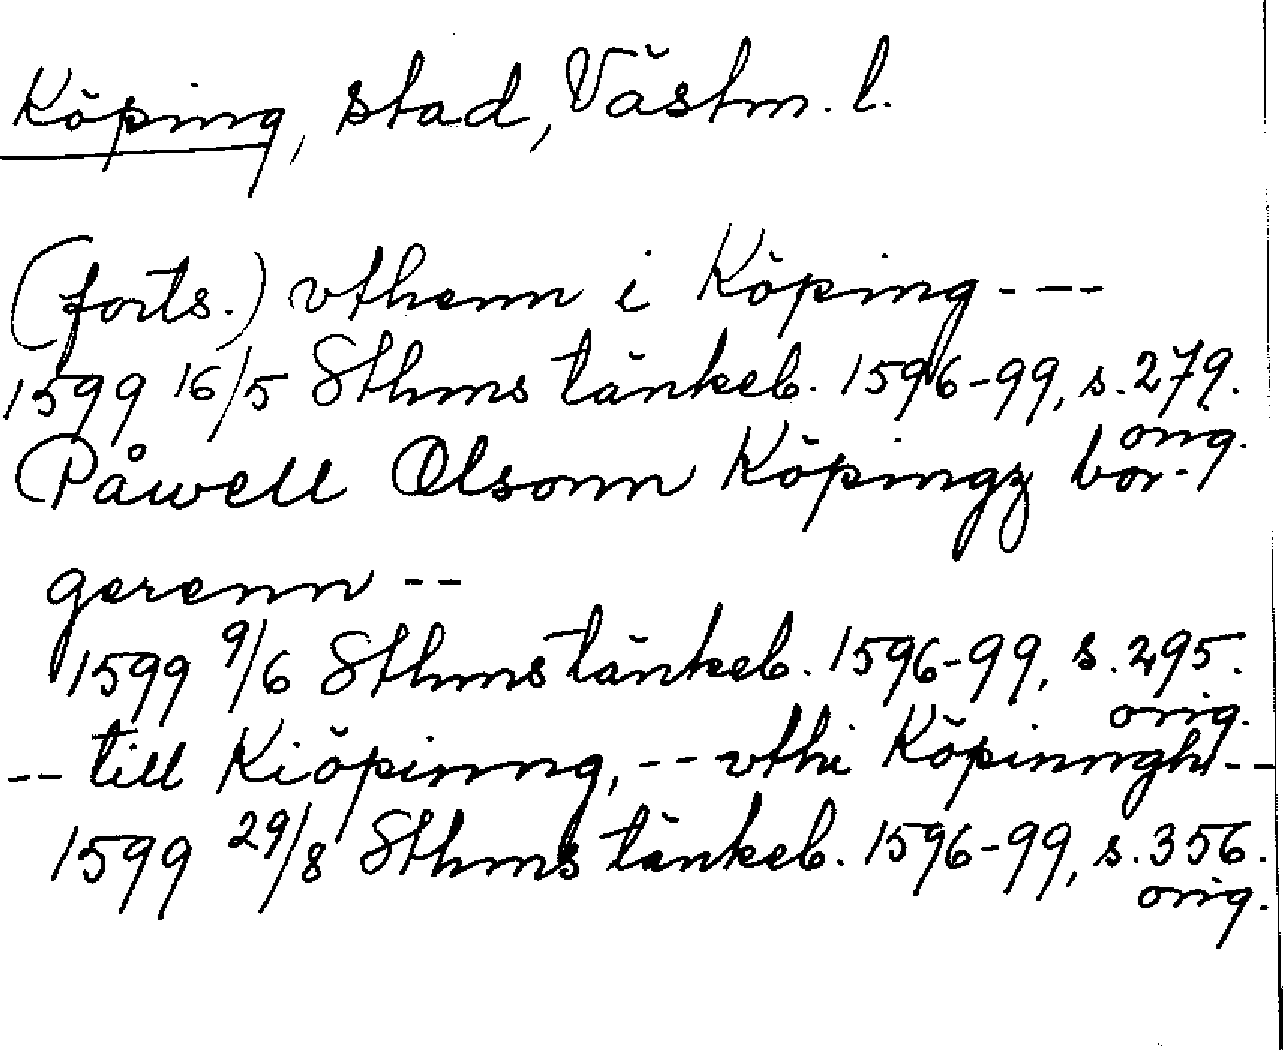 Köping, stad, Västm. l.
(forts.) vthenn i Köping ---
1599 16/5 Sthms tänkeb. 1596-99, s. 279.
orig.
Påwell Olsonn Köpingz bor-
gerenn --
1599 9/6 Sthms tänkeb. 1596-99, s. 295.
orig.
-- till Kiöpinng, -- vthi Köpinngh --
1599 29/8 Sthms tänkeb. 1596-99, s. 356.
orig.